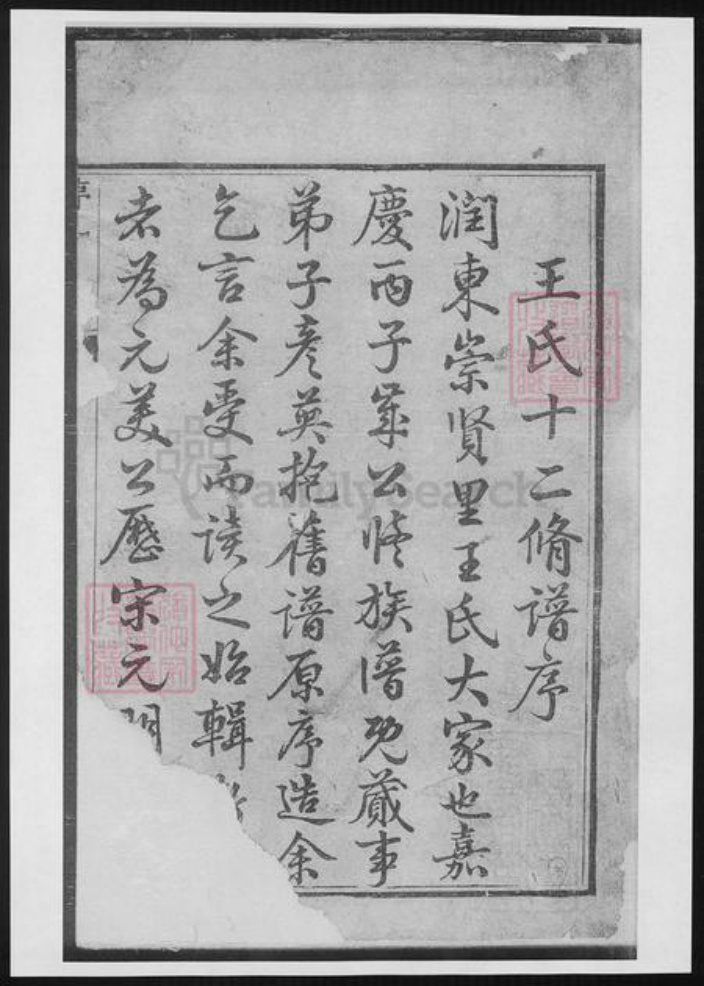 王氏十二脩譜序
潤東崇賢里王氏大家也嘉
慶丙子歲公修族譜既蕆事
弟子彥英抱舊譜原序造余
乞言余受而讀之始輯
者為元美公歷宋元明
序一
FamilySearch